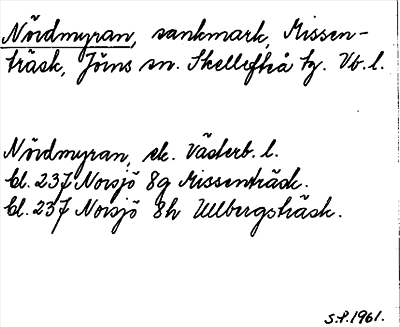 Nördmyran, sankmark, Missen-
träsk, Jörns sn. Skellefteå tg. Vb. l.
Nördmyran, ek. Västerb. l.
Bl. 237 Norsjö 8g Missenträsk.
Bl. 237 Norsjö 8h Ullbergsträsk.
S.P. 1961.